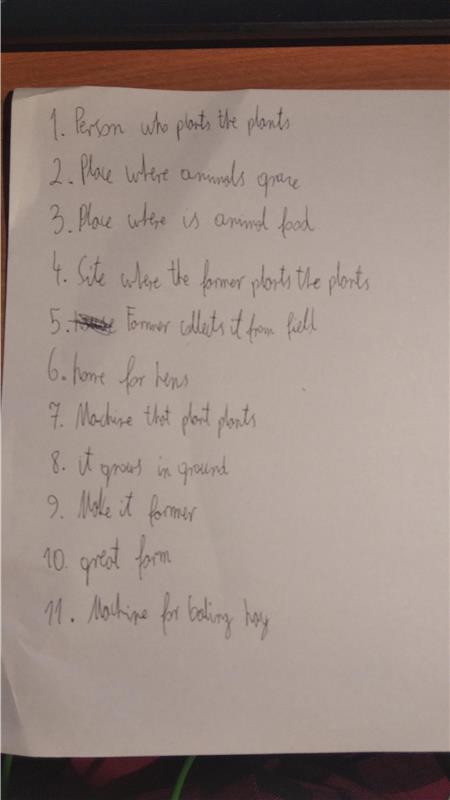 1. Person who plants the plants
2. Place where animals graze
3. Place where is animal food
4. Site where the farmer plants the plants
5. Farmer collects it from field
6. home for hens
7. Machine that plant plants
8. it grows in ground
9. Make it farmer
10. great farm
11. Machine for baling hay